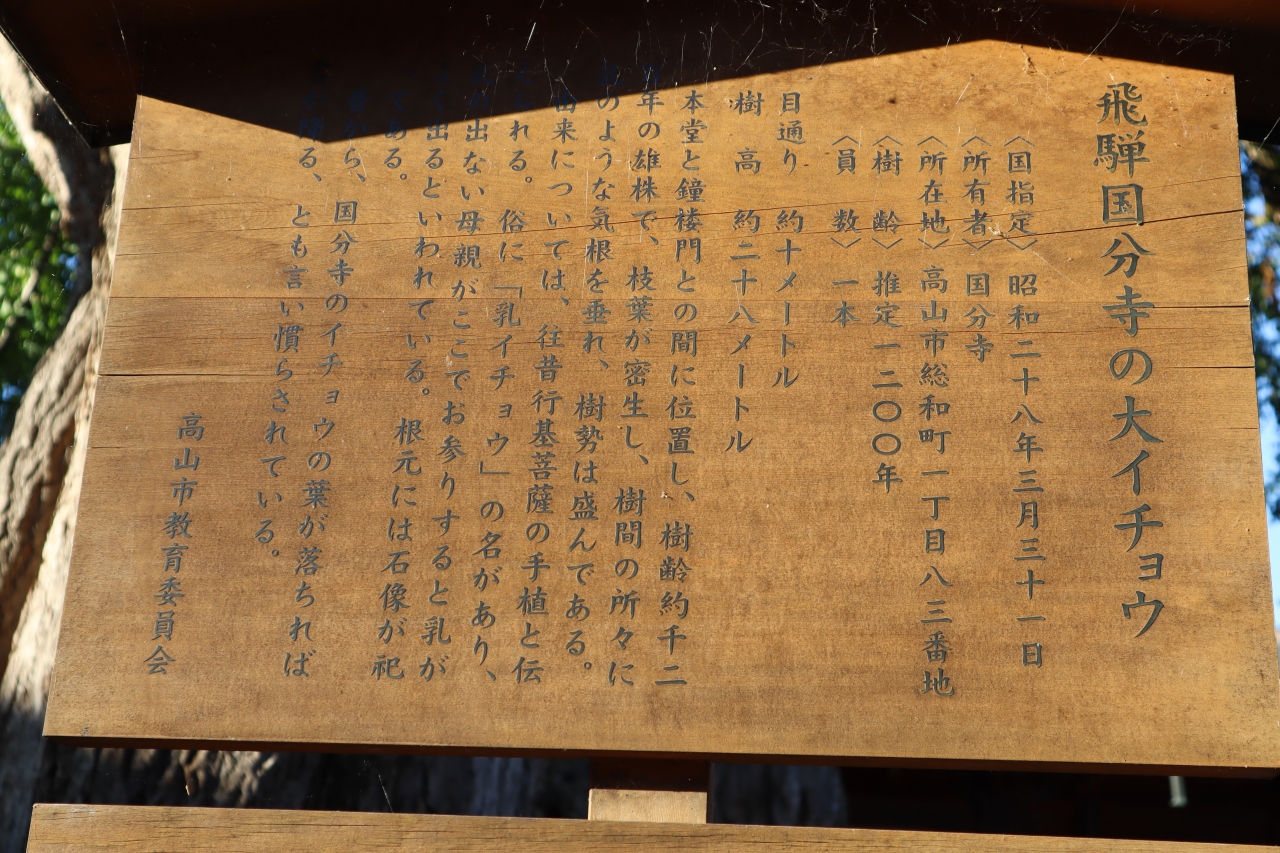 飛騨国分寺の大イチョウ
〈国指定〉 昭和二十八年三月三十一日
〈所有者〉 国分寺
〈所在地〉 高山市総和町一丁目八三番地
〈樹 齢〉 推定一二〇〇年
〈員 数〉 一本
目通り 約十メートル
樹 高 約二十八メートル
本堂と鐘楼門との間に位置し、樹齢約千二
百年の雄株で、枝葉が密生し、樹間の所々に
のような気根を垂れ、樹勢は盛んである。
由来については、往昔行基菩薩の手植と伝
えられる。俗に「乳イチョウ」の名があり、
乳の出ない母親がここでお参りすると乳が
よく出るといわれている。根元には石像が祀
ってある。
昔から、国分寺のイチョウの葉が落ちれば
雪が降る、とも言い慣らされている。
高山市教育委員会